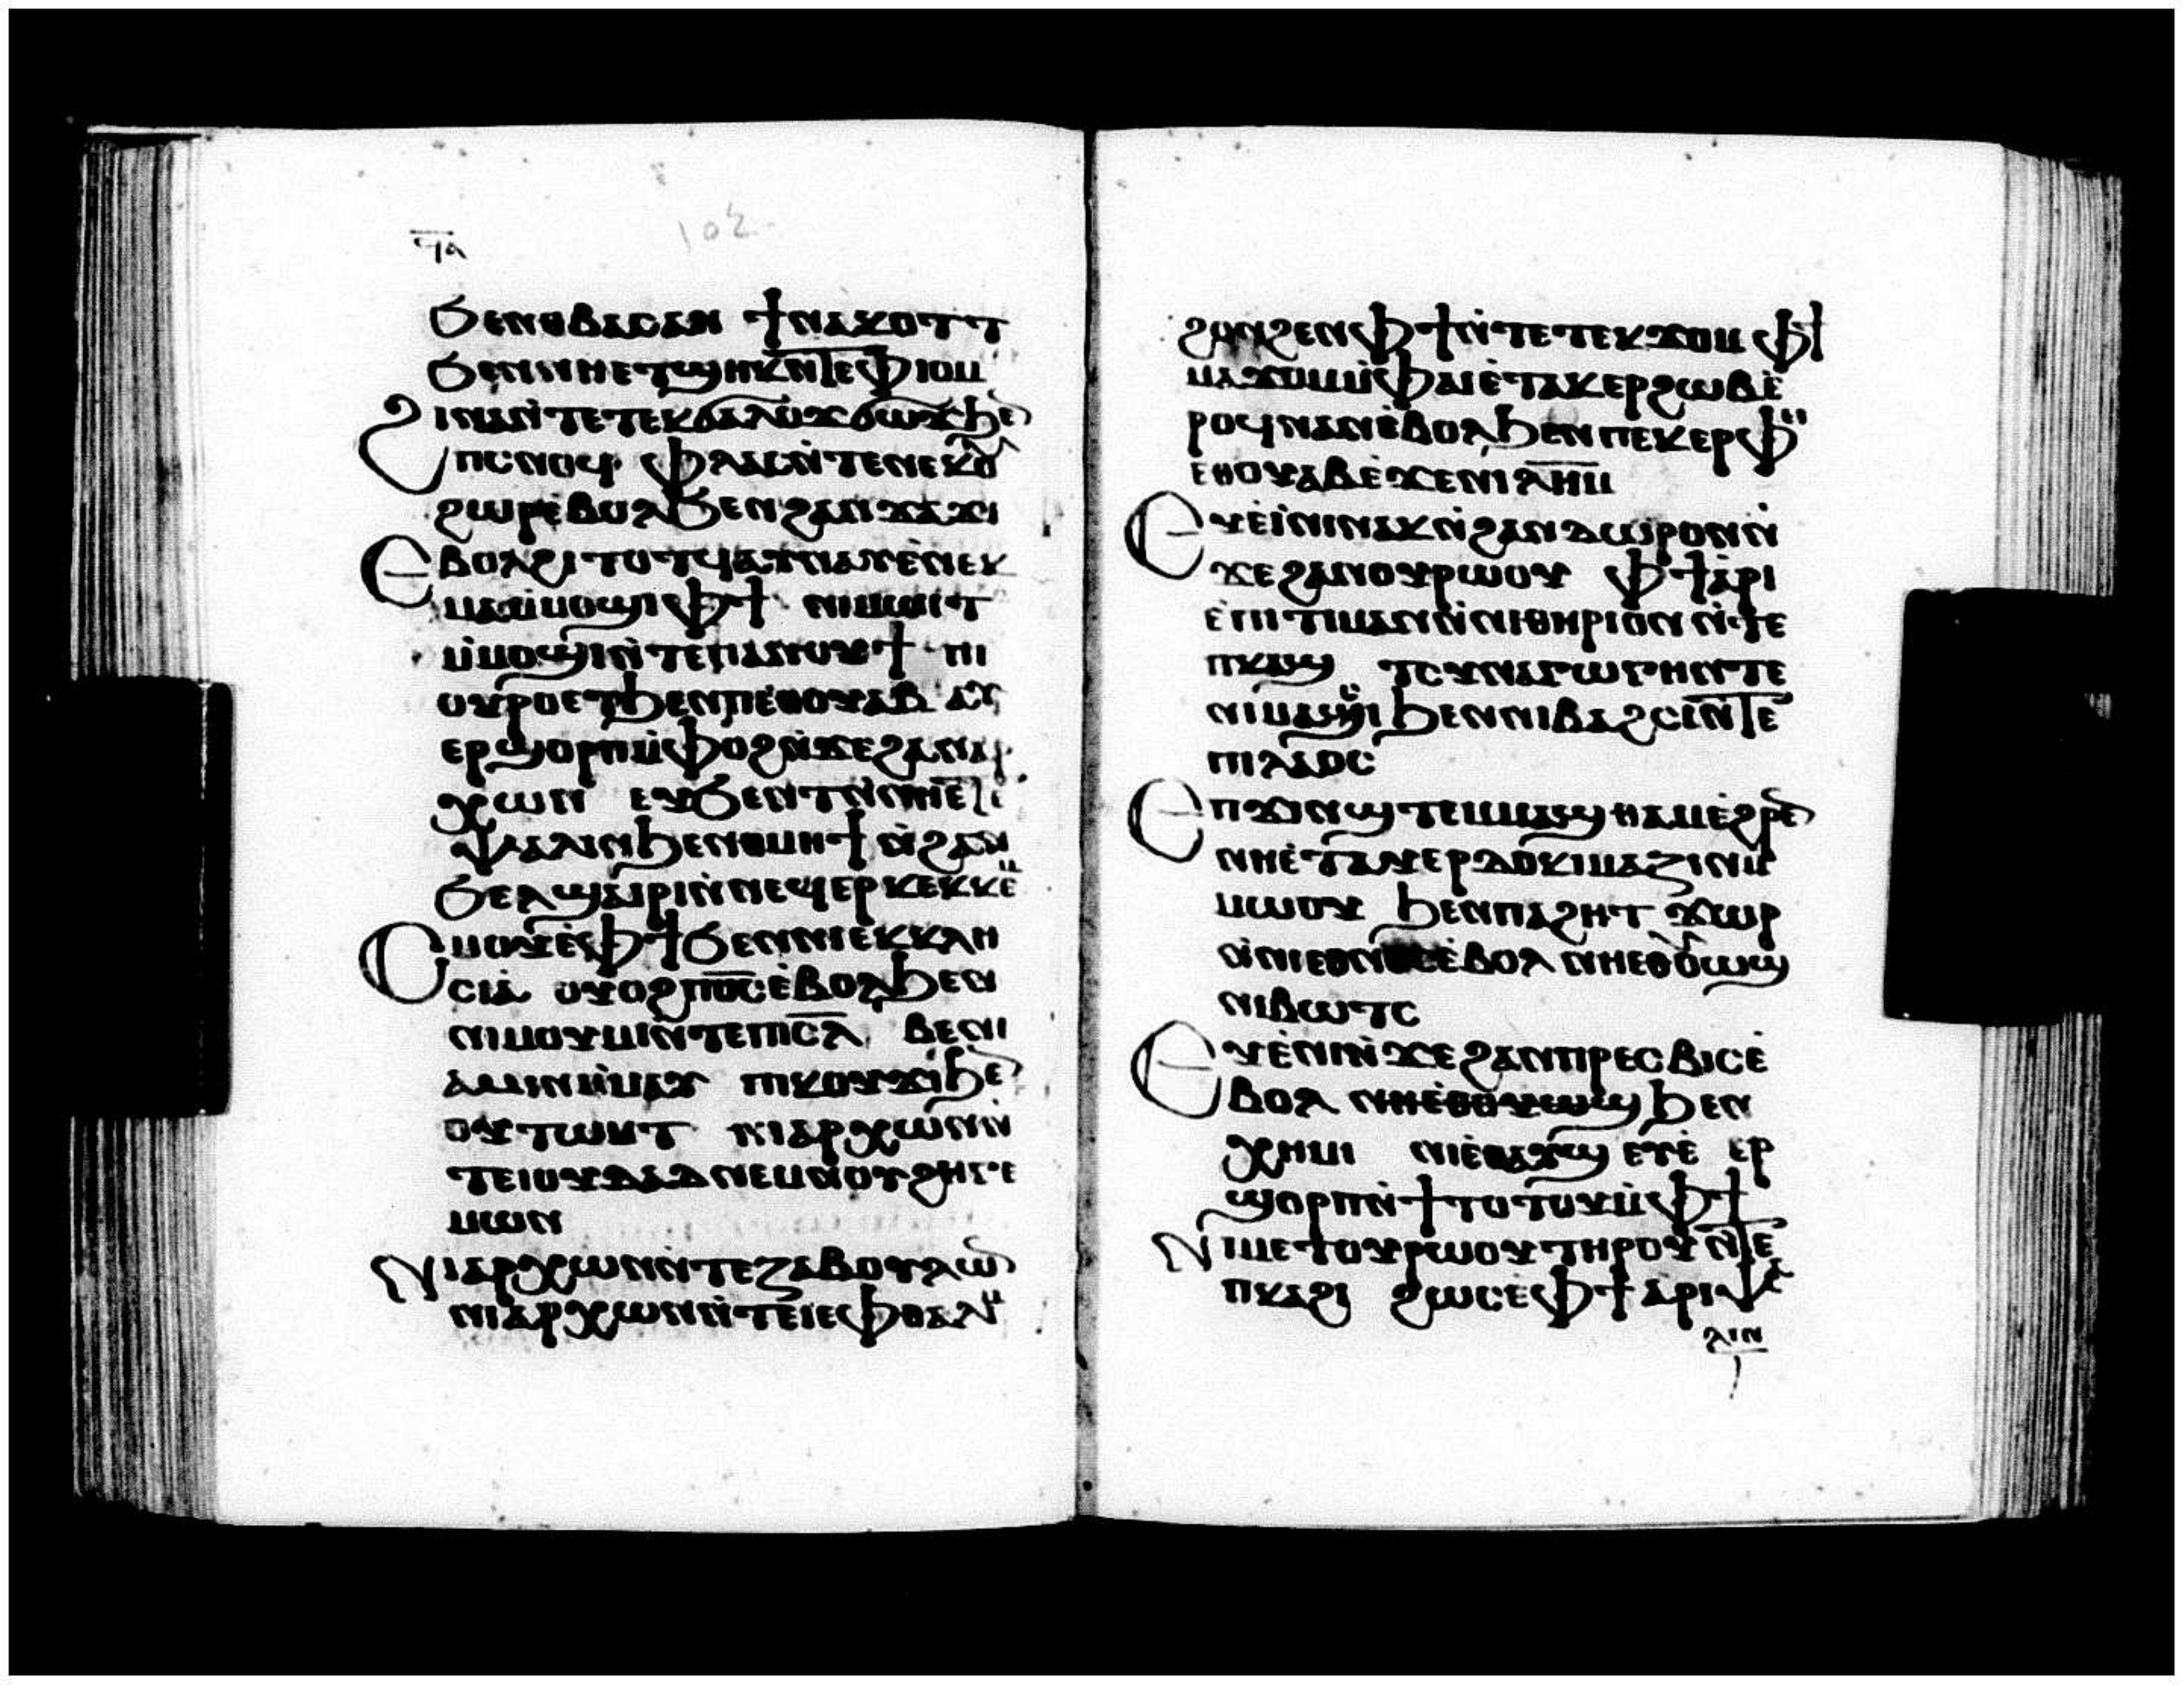 ϥⲁ
102
Ϧⲉⲛⲑⲃⲁⲥⲁⲛ ϯⲛⲁⲕⲟⲧⲧ
Ϧⲉⲛⲛⲏⲉⲧϣⲏⲕⲛ̅ⲧⲉⲫⲓⲟⲙ
Ϩⲓⲛⲁⲛ̀ⲧⲉⲧⲉⲕϭⲁⲗⲟϫϭⲱⲗϫϧⲉ
ⲡⲥⲛⲟϥ ⲫⲗⲁⲥⲛ̀ⲧⲉⲛⲉⲕⲟ
ϩⲱⲣⲉ̀ⲃⲟⲗϦⲉⲛϩⲁⲛϫⲁϫⲓ
Ⲉⲃⲟⲗϩⲓⲧⲟⲧϥⲁⲩⲛⲁⲩⲉ̀ⲛⲉⲕ
ⲙⲁⲙ̀ⲙⲟϣⲓⲫϯ ⲛⲓⲙⲱⲓⲧ
ⲙ̀ⲙⲟϣⲓⲛ̀ⲧⲉⲡⲁⲛⲟⲩϯ ⲡⲓ
ⲟⲩⲣⲟⲉⲧϧⲉⲛⲡⲉⲑⲟⲩⲁⲃ ⲁⲩ
ⲉⲣϣⲟⲣⲡⲙ̀ⲫⲟϩⲛ̀ϫⲉϩⲁⲛⲁⲣ
ⲭⲱⲛ ⲉⲩϦⲉⲛⲧ
ⲯⲁⲗⲓⲛϧⲉⲛⲑⲙⲏϯ ⲛ̀ϩⲁⲛ
Ϧⲉⲗϣⲁⲓⲣⲓⲛ̀ⲛⲉϥⲉⲣⲕⲉⲕⲕⲉ
Ⲥⲙⲟⲩⲉ̀ⲫϯϦⲉⲛⲛⲓⲉⲕⲕⲗⲏ
ⲥⲓⲁ̀ ⲟⲩⲟϩⲡⲟ̅ⲥ̅ⲉ̀ⲃⲟⲗϧⲉⲛ
ⲛⲓⲙⲟⲩⲙⲓⲛ̀ⲧⲉⲡⲓⲥ̅ⲗ̅ ⲃⲉⲛⲓ
ⲁⲙⲓⲛⲙ̀ⲙⲁⲩ ⲡⲓⲕⲟⲩϫⲓϧⲉ
ⲟⲩⲧⲱⲙⲧ ⲛⲓⲁⲣⲭⲱⲛⲛ̀
ⲧⲉⲓⲟⲩⲇⲁⲇⲛⲉⲙⲛⲟⲩϩⲏⲅⲉ
ⲙⲱⲛ
Ⲛⲓⲁⲣⲭⲱⲛⲛ̀ⲧⲉⲍⲁⲃⲟⲩⲗⲱ
ⲛⲓⲁⲣⲭⲱⲛⲛ̀ⲧⲉⲓⲉⲫⲑⲁⲗⲓⲙ
ϩⲟⲛϩⲉⲛⲫϯⲛ̀ⲧⲉⲧⲉⲕϫⲟⲙ ⲫϯ
ⲙⲁϫⲟⲙⲙ̀ⲫⲁⲓⲉ̀ⲧⲁⲕⲉⲣϩⲱⲃⲉ̀
ⲣⲟϥⲛⲁⲛⲉ̀ⲃⲟⲗϧⲉⲛⲡⲉⲕⲉⲣⲫ
ⲉⲑⲟⲩⲁⲃⲉ̀ϫⲉⲛⲓⲗ̅ⲏ̅ⲙ̅
Ⲉⲩⲉ̀ⲓ̀ⲛⲓⲛⲁⲕⲛ̀ϩⲁⲛⲇⲱⲣⲟⲛⲛ̀
ϫⲉϩⲁⲛⲟⲩⲣⲱⲟⲩ ⲫϯⲁ̀ⲣⲓ
ⲉ̀ⲡⲓⲧⲓⲙⲁⲛⲛ̀ⲛⲓⲑⲏⲣⲓⲟⲛⲛ̀ⲧⲉ
ⲡⲕⲁϣ ⲧⲥⲩⲛⲁⲅⲱⲅⲏⲛⲧⲉ
ⲛⲓⲙⲁⲥⲓϧⲉⲛⲛⲓⲃⲁϩⲥⲓⲛ̅ⲧⲉ
ⲡⲓⲗⲁⲟⲥ
Ⲉⲡϫⲓⲛϣⲧⲉⲙⲙⲁϣⲑⲁⲙⲉ̀ϩⲣⲉ
ⲛⲏⲉ̀ⲧⲁⲩⲉⲣⲇⲟⲕⲓⲙⲁⲍⲓⲛⲙ̀
ⲙⲱⲟⲩ ϧⲉⲛⲡⲓϩⲏⲧ ϫⲱⲣ
ⲛ̀ⲛⲓⲉⲑⲛⲟⲥⲉ̀ⲃⲟⲗ ⲛⲏⲉⲑⲟⲩⲱϣ
ⲛⲓⲃⲱⲧⲥ
Ⲉⲩⲉ̀ⲓ̀ⲛ̀ϫⲉϩⲁⲛⲡⲣⲉⲥⲃⲓⲥⲉ̀
ⲃⲟⲗ ⲛⲏⲉ̀ⲑⲟⲩⲱϣ ϧⲉⲛ
ⲭⲏⲙⲓ ⲛⲓⲉ̀ⲑⲁⲩϣ ⲉⲩⲉ̀ ⲉⲣ
ϣⲟⲣⲡⲛ̀ϯⲧⲟⲧⲟⲩⲙ̀ⲫϯ
Ⲛⲓⲙⲉⲧⲟⲩⲣⲱⲟⲩⲧⲏⲣⲟⲩⲛ̅ⲧⲉ
ⲡⲕⲁϩⲓ ϩⲱⲥⲉ̀ⲫϯ ⲁⲣⲓⲯⲁ
ⲗⲓⲛ